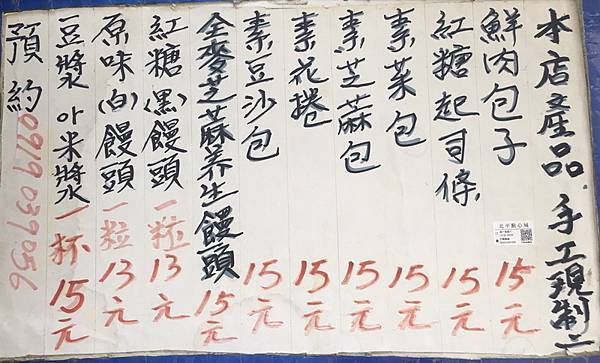 本店產品 手工現制
鮮肉包子 15元
紅糖起司條 15元
素菜包 15元
素芝麻包 15元
素花捲 15元
素豆沙包 15元
全麥芝蔴养生饅頭 15元
紅糖(黑)饅頭 一粒 13元
原味(白)饅頭 一粒 13元
豆漿 or 米漿 一杯 15元
預約 0919 039 056